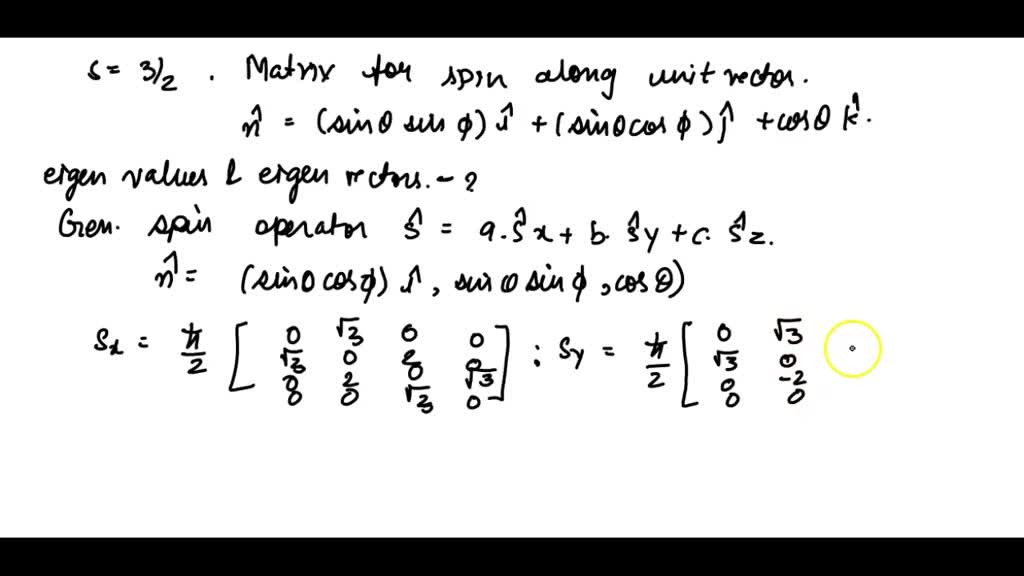 s = 3/2 . Matrix for spin along unit vector.
n̂ = (sinθ sin φ) î + (sinθ cos φ) ĵ + cosθ k̂.
eigen values & eigen vectors. - ?
Gen. spin operator Ŝ = a. Ŝx + b. Ŝy + c. Ŝz.
n̂ = (sinθ cos φ) î , sin θ sin φ , cos θ)
Sx = ħ/2 [ 0 √3 0 0 ; Sy = ħ/2 [ 0 √3
√3 0 2 0 √3 0
0 2 0 √3 ] 0 -2
0 0 √3 0 0 0